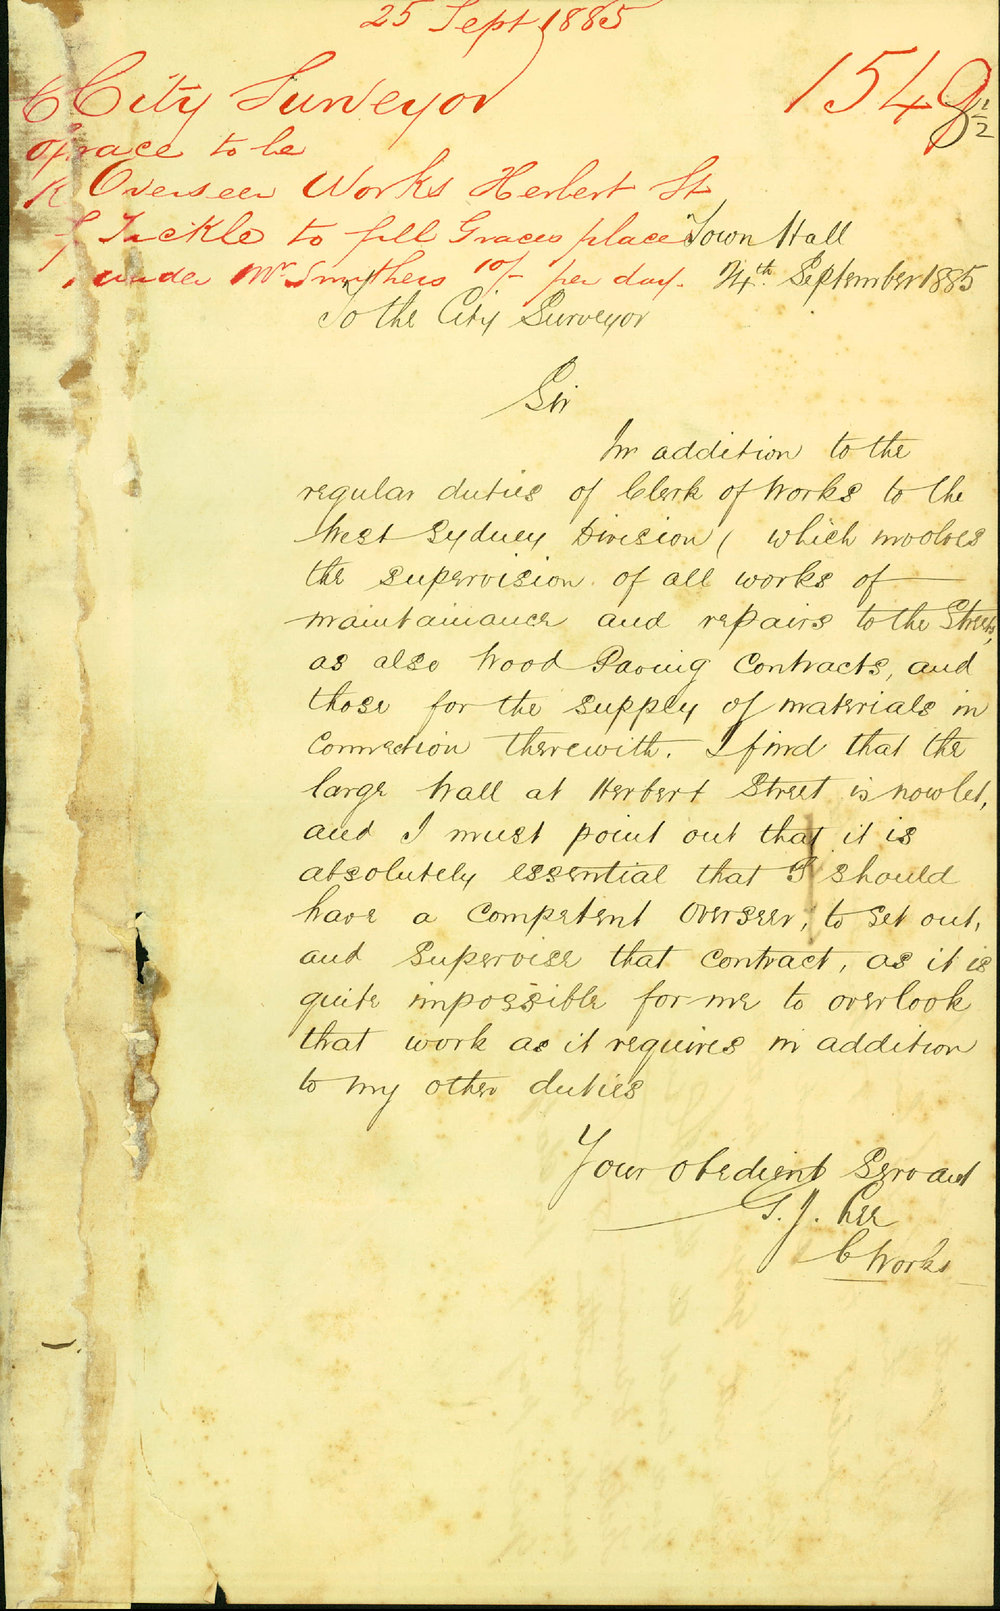 25 Sept 1885
City Surveyor
1549 1/2
Grace to be
Overseer Works Herbert St
Tickle to fill Graces place
under Mr Smithers 10/- per day.
Town Hall
24th September 1885
To the City Surveyor
Sir
In addition to the
regular duties of Clerk of Works to the
West Sydney Division ( which involves
the supervision of all works of
maintainance and repairs to the Streets,
as also Wood Paving Contracts, and
those for the supply of materials in
Connection therewith. I find that the
large Wall at Herbert Street is now let,
and I must point out that it is
absolutely essential that I should
have a Competent Overseer, to set out,
and Supervise that Contract, as it is
quite impossible for me to overlook
that work as it requires in addition
to my other duties
Your obedient Servant
G. J. Lee
C Works